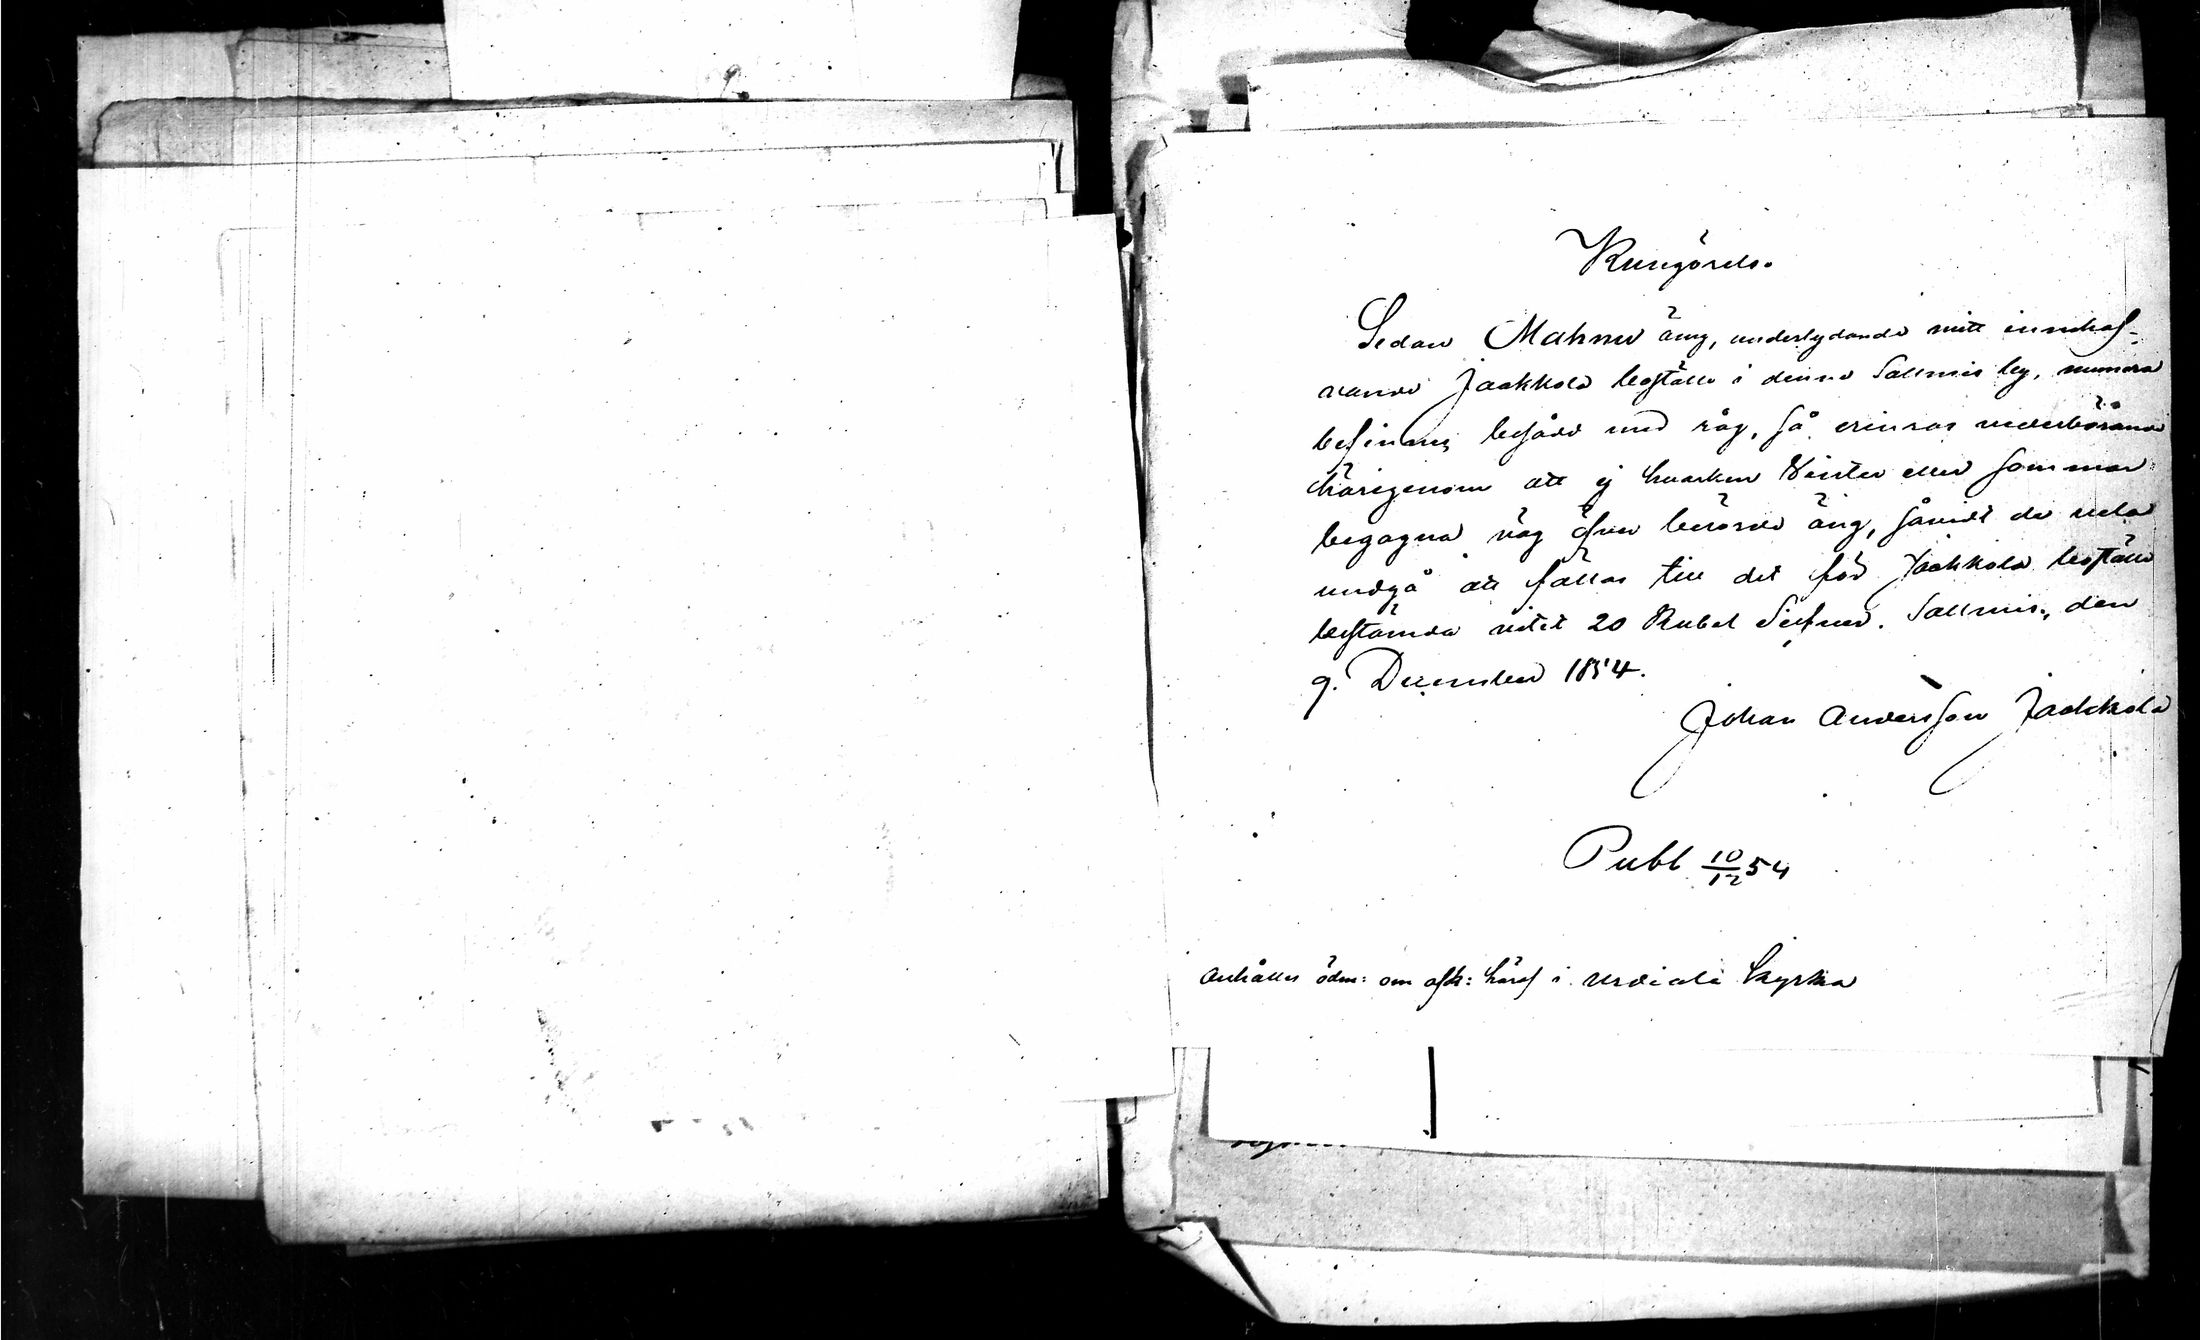 Kungörelse.
Sedan Mahnu äng, underlydande mitt innehaf-
vande Jaakkola boställe i denna Sallmis by, numera
befinnes besådd med råg, så erinras vederbörande
härigenom att ej hvarken Vinter eller sommar
begagna väg öfver berörde äng, såvidt de vela
undgå att fällas till det för Jaakkola boställe
bestämda vitet 20 Rubel Silfver. Sallmis, den
9. December 1854.
Johan Andersson Jaakkola
Publ 10/12 54
Anhålles ödm: om i Urdiala kyrka